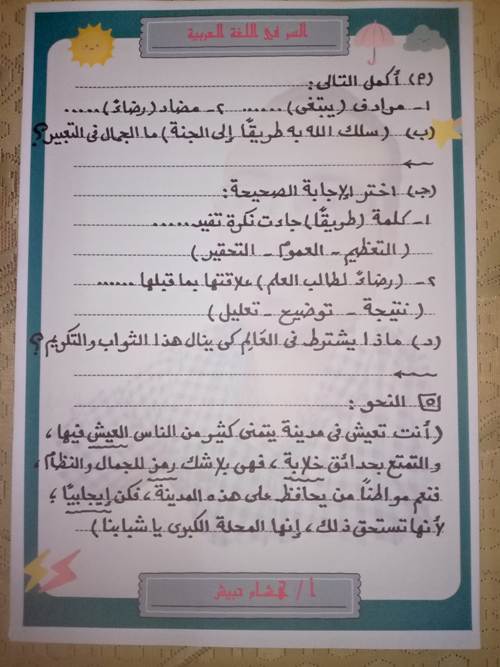 السر في اللغة العربية
(أ) أكمل التالى:
١- مرادف (يبتغى) ...... ٢- مضاد (رضاءً) .....
(ب) (سلك الله به طريقًا إلى الجنة) ما الجمال فى التعبير؟
(جـ) اختر الإجابة الصحيحة:
١- كلمة (طريقًا) جاءت نكرة تفيد .....
(التعظيم - العموم - التحقير)
٢- (رضاءً لطالب العلم) علاقتها بما قبلها ......
(نتيجة - توضيح - تعليل)
(د) ماذا يشترط فى العَالِم كى ينال هذا الثواب والتكريم؟
٥ النحو:
(أنت تعيش فى مدينة يتمنى كثير من الناس العيش فيها،
والتمتع بحدائق خلابة، فهى بلا شك رمز للجمال والنظام،
فنعم مواطنًا من يحافظ على هذه المدينة، فكن إيجابيًا؛
لأنها تستحق ذلك، إنها المحلة الكبرى يا شبابنا)
أ / هشام حبيش